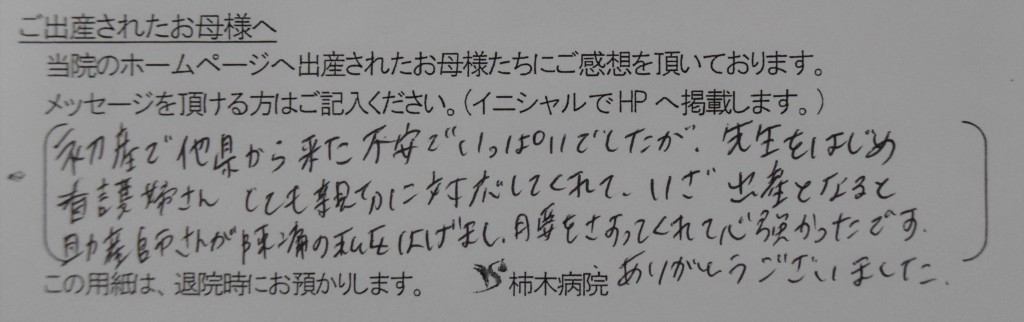 ご出産されたお母様へ
当院のホームページへ出産されたお母様たちにご感想を頂いております。
メッセージを頂ける方はご記入ください。(イニシャルでHPへ掲載します。)
初産で他県から来た不安でいっぱいでしたが、先生をはじめ
看護婦さんとても親切に対応してくれて、いざ出産となると
助産師さんが陣痛の私をはげまし、腰をさすってくれて心強かったです。
ありがとうございました。
この用紙は、退院時にお預かりします。 柿木病院